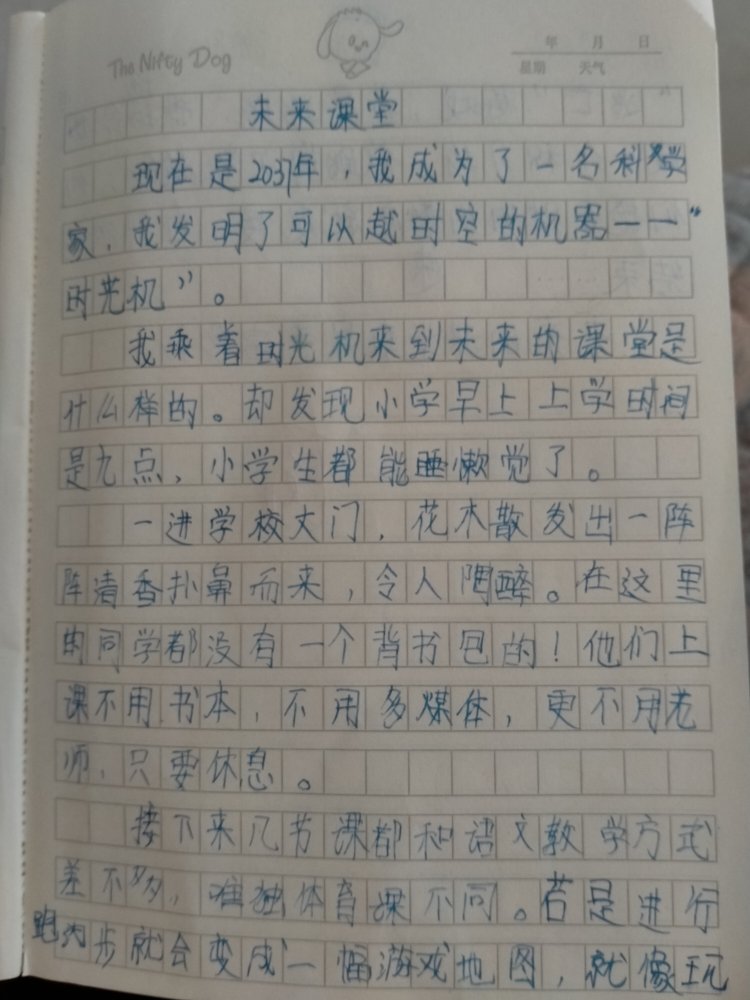 The Nifty Dog
年 月 日
星期 天气
未来课堂
现在是2037年，我成为了一名科学
家，我发明了可以越时空的机器——“
时光机”。
我乘着时光机来到未来的课堂是
什么样的。却发现小学早上上学时间
是九点，小学生都能睡懒觉了。
一进学校大门，花木散发出一阵
阵清香扑鼻而来，令人陶醉。在这里
的同学都没有一个背书包的！他们上
课不用书本，不用多媒体，更不用老
师，只要休息。
接下来几节课都和语文教学方式
差不多，唯独体育课不同。若是进行
跑步就会变成一幅游戏地图，就像玩